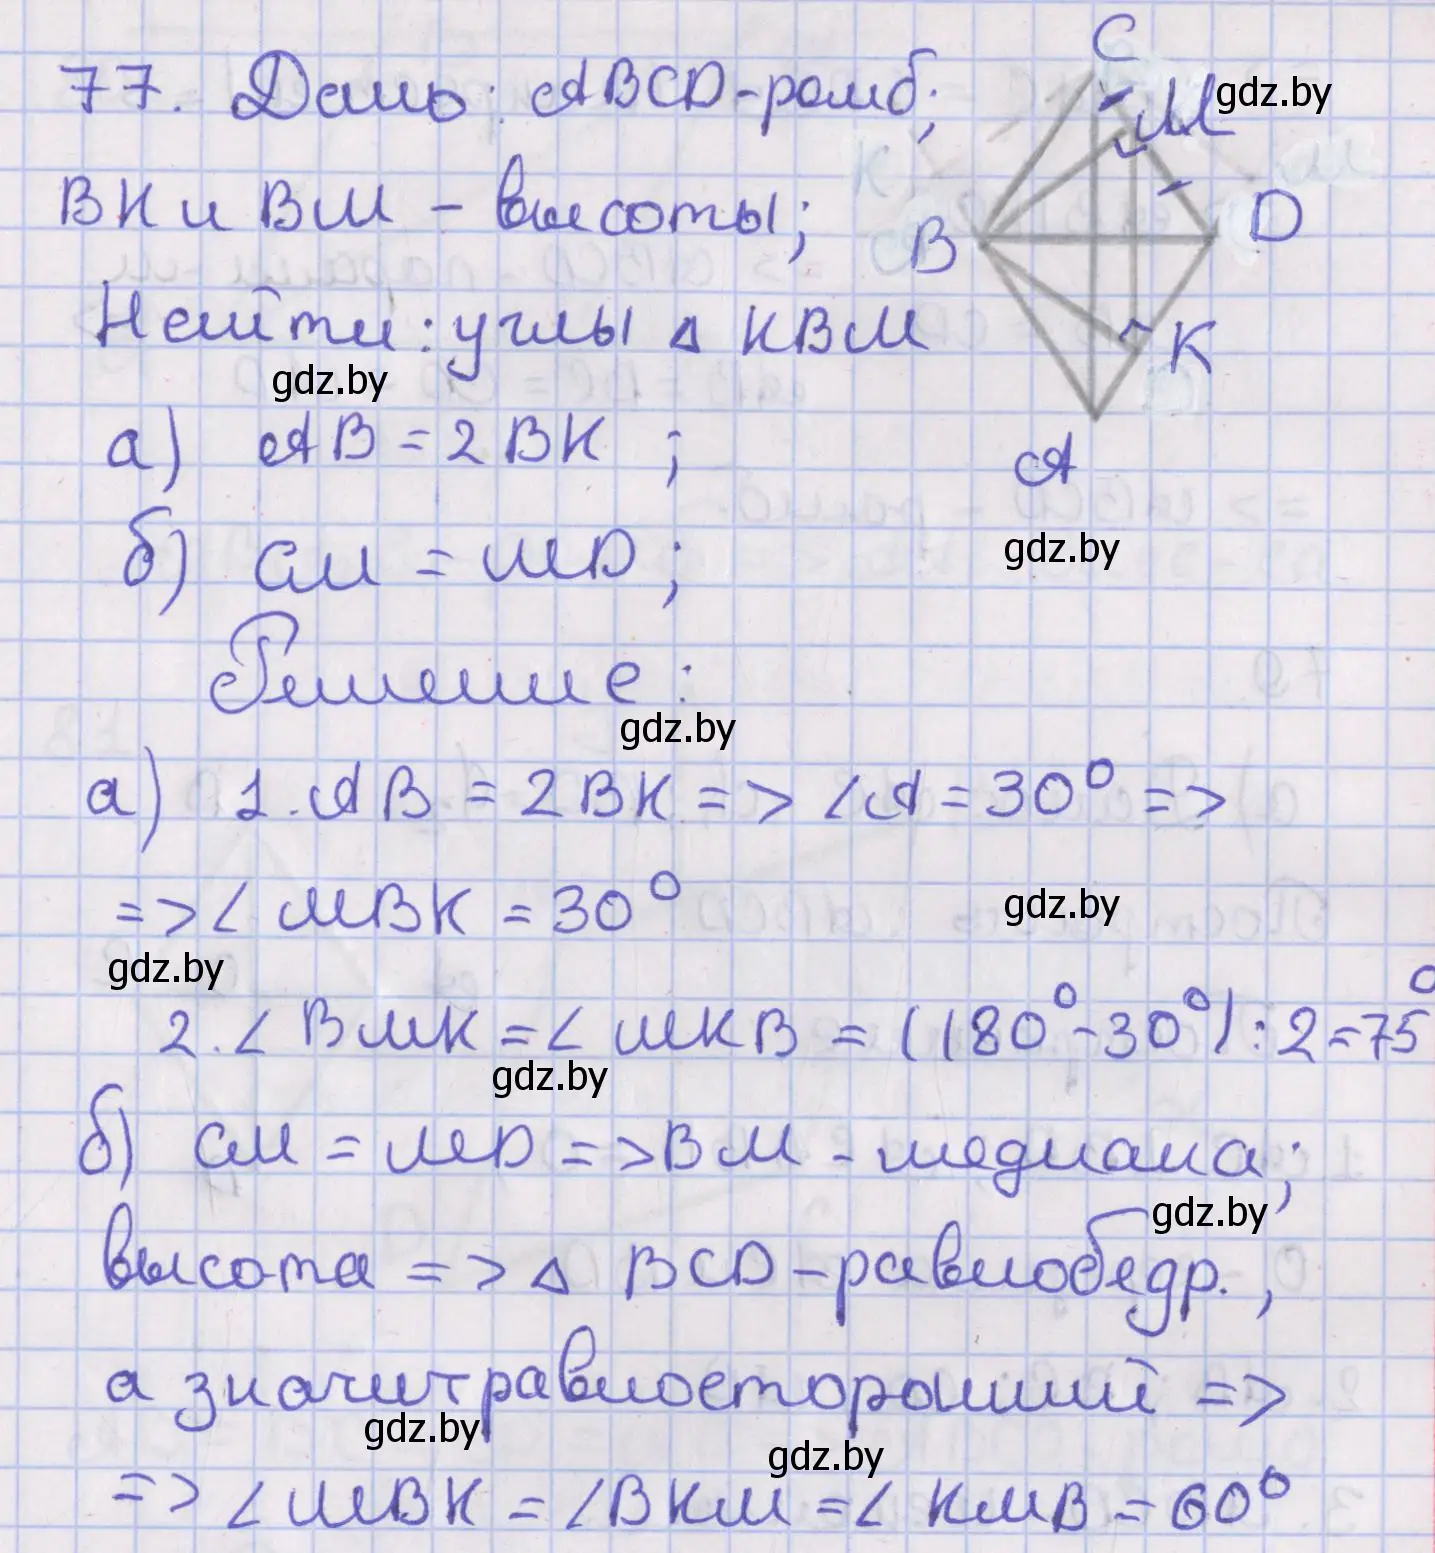 77. Дано: ABCD-ромб;
C
M
gdz.by
BK и BM - высоты;
B
D
Найти: углы Δ KBM
K
gdz.by
а) AB = 2BK ;
A
б) CM = MD;
gdz.by
Решение:
gdz.by
а) 1. AB = 2BK => ∠A = 30° =>
=> ∠ MBK = 30°
gdz.by
gdz.by
2. ∠ BMK = ∠ MKB = (180° - 30°) : 2 = 75°
gdz.by
б) CM = MD => BM - медиана;
gdz.by
высота => Δ BCD - равнобедр. ,
а значит равносторонний =>
gdz.by
gdz.by
=> ∠ MBK = ∠BKM = ∠ KMB = 60°